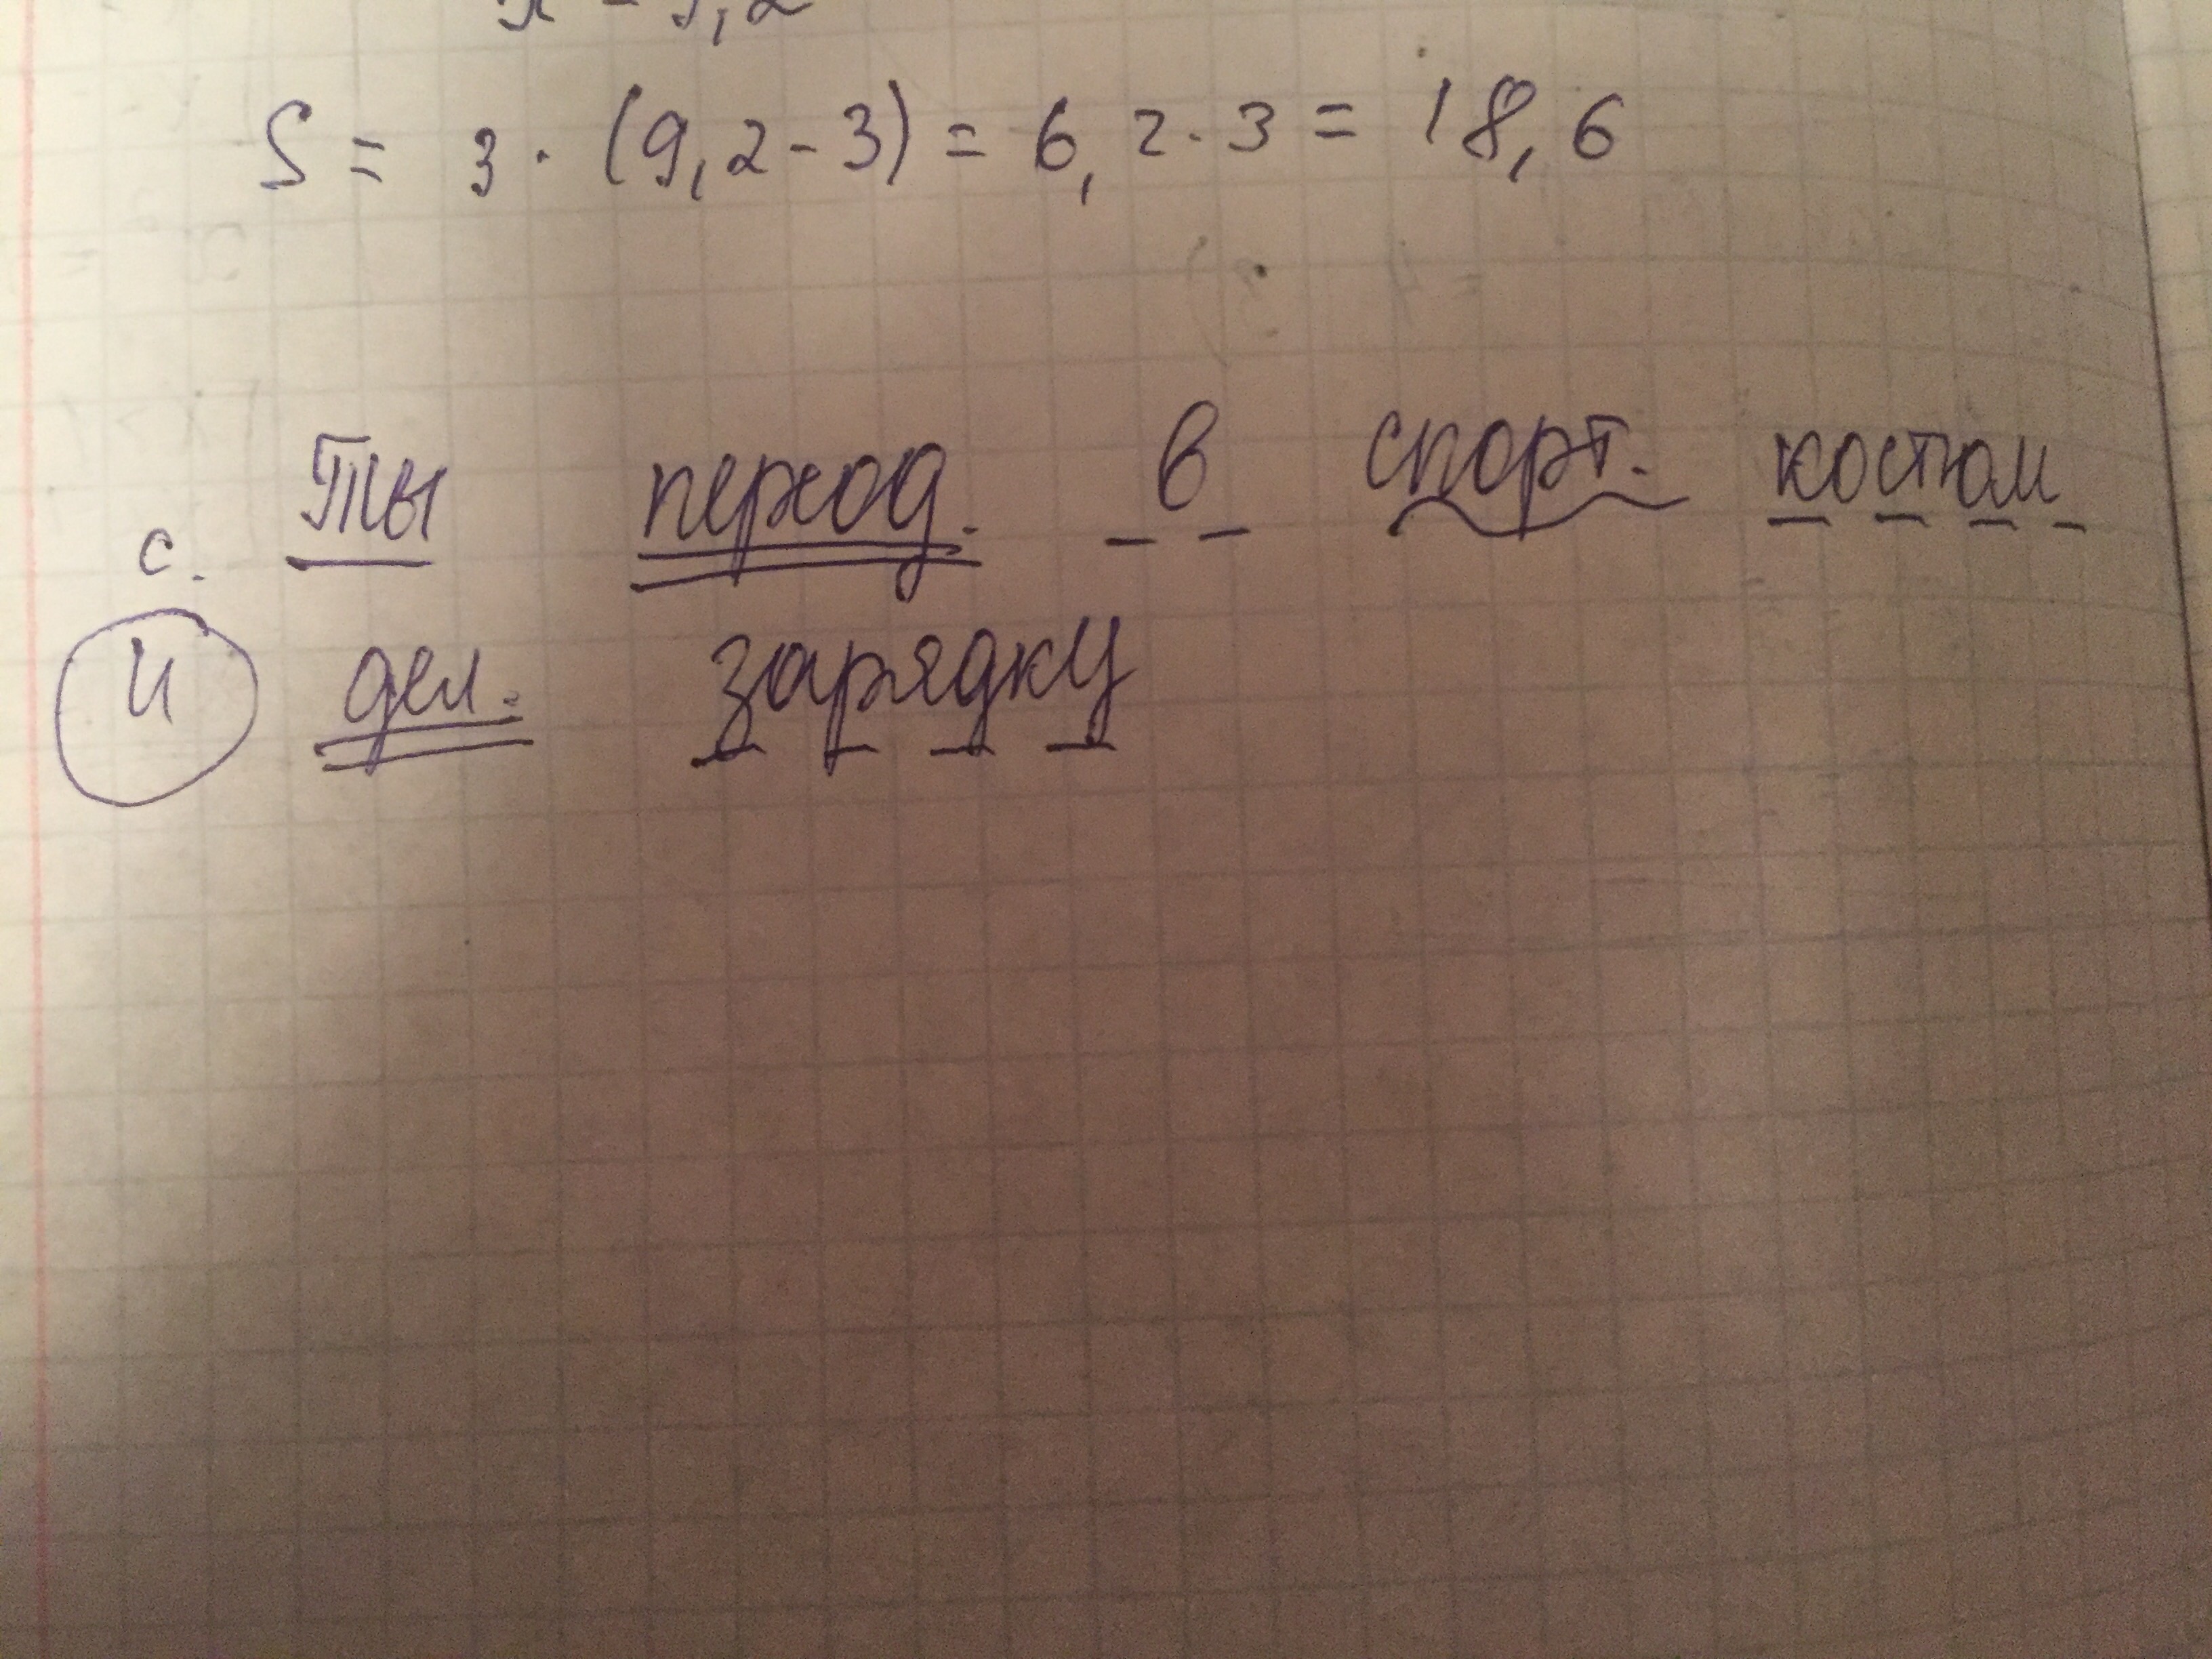 S = 3 · (9,2 - 3) = 6,2 · 3 = 18,6
с. Ты переод. в спорт. костюм
и дел. зарядку